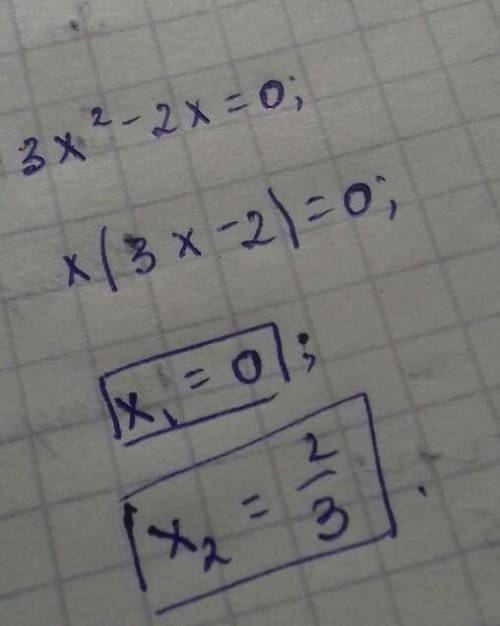 3x² - 2x = 0;
x(3x - 2) = 0;
x₁ = 0;
x₂ = 2/3.